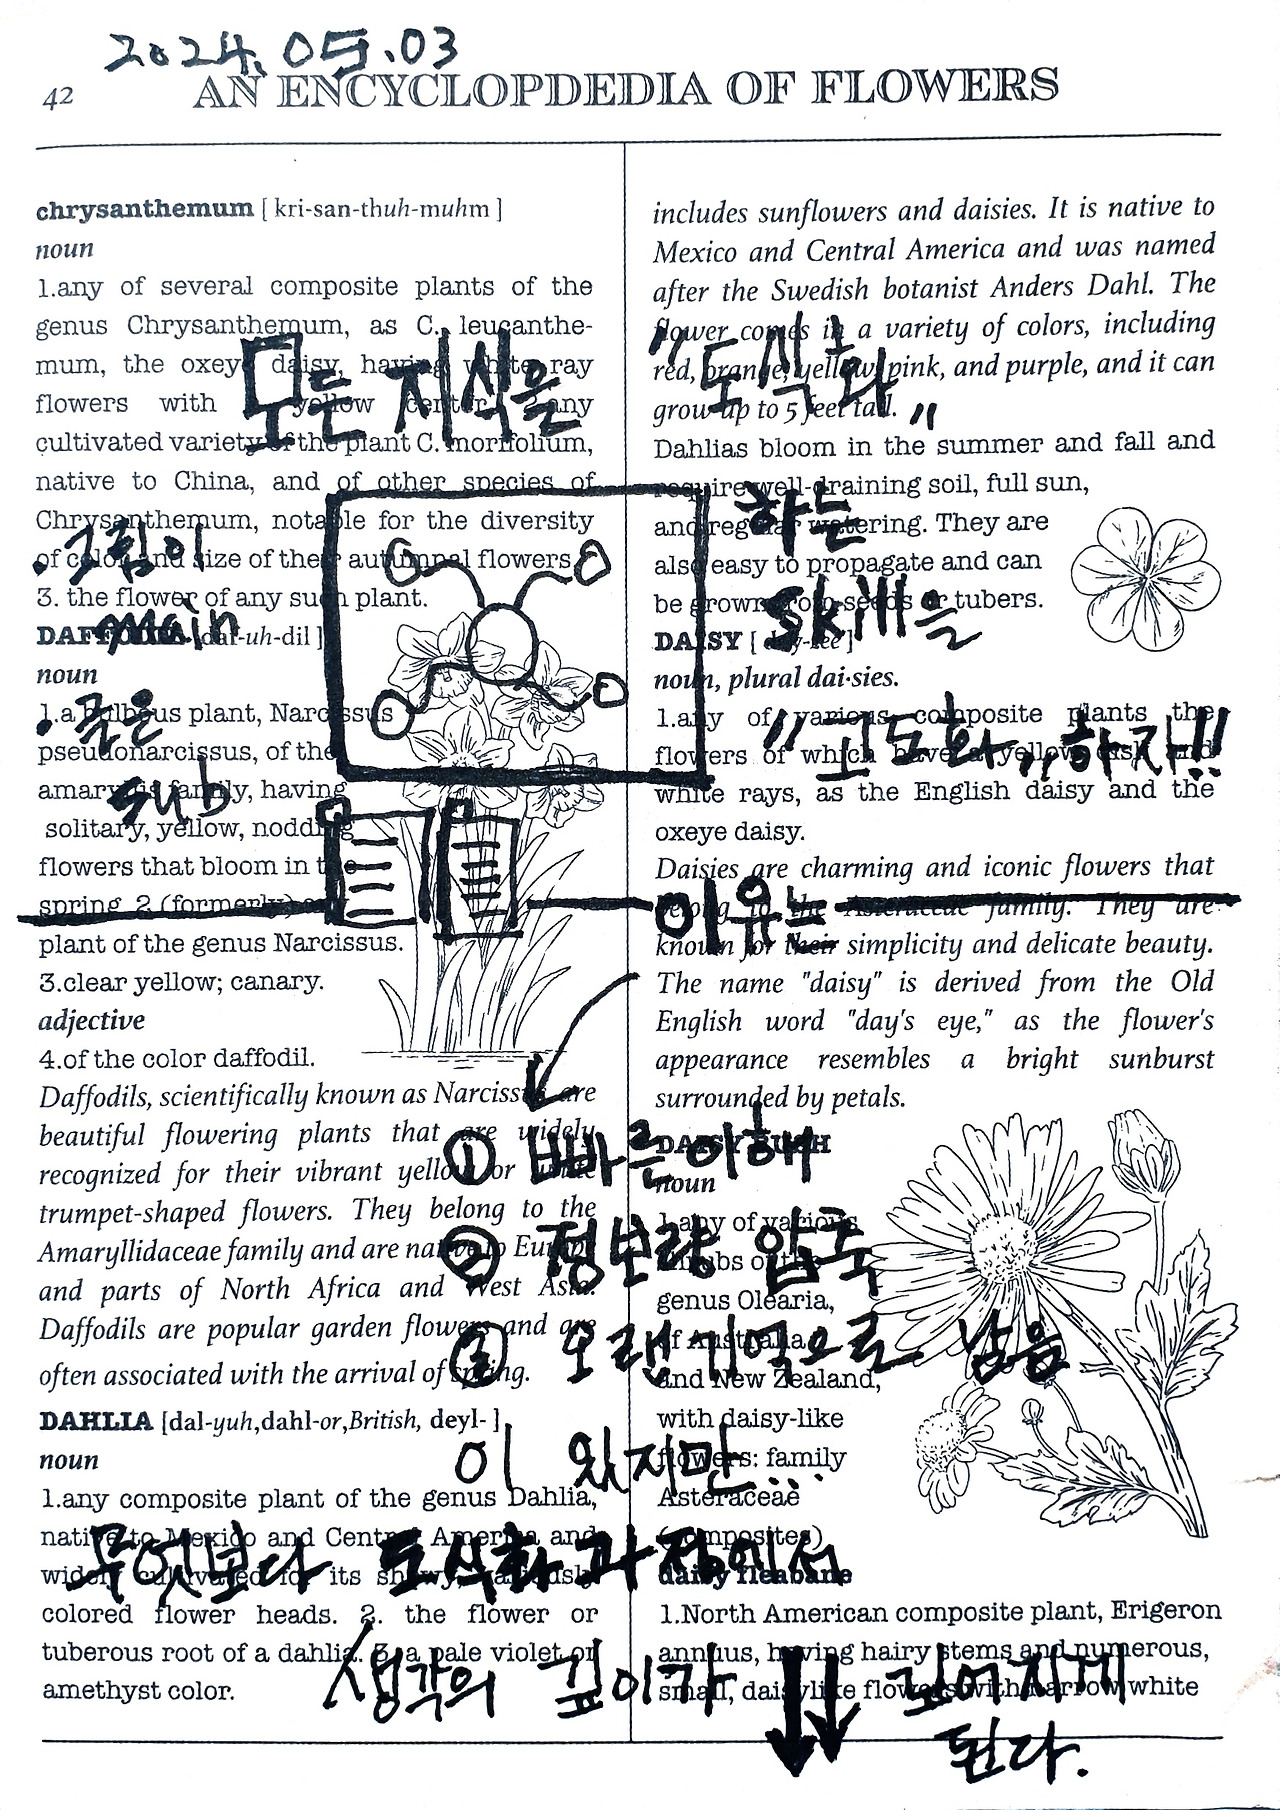 2024.05.03
42
AN ENCYCLOPDEDIA OF FLOWERS
chrysanthemum [ kri-san-thuh-muhm ]
noun
1.any of several composite plants of the
genus Chrysanthemum, as C. leucanthe-
mum, the oxeye daisy, having white ray
flowers with yellow center. 2.any
cultivated variety of the plant C. morifolium,
native to China, and of other species of
Chrysanthemum, notable for the diversity
of color and size of their autumnal flowers.
3. the flower of any such plant.
DAFFODIL [daf-uh-dil]
noun
1.a bulbous plant, Narcissus
pseudonarcissus, of the
amaryllis family, having
solitary, yellow, nodding
flowers that bloom in the
spring. 2.(formerly) any
plant of the genus Narcissus.
3.clear yellow; canary.
adjective
4.of the color daffodil.
Daffodils, scientifically known as Narcissus are
beautiful flowering plants that are widely
recognized for their vibrant yellow or white
trumpet-shaped flowers. They belong to the
Amaryllidaceae family and are native to Europe
and parts of North Africa and West Asia.
Daffodils are popular garden flowers and are
often associated with the arrival of spring.
DAHLIA [dal-yuh,dahl-or,British, deyl- ]
noun
1.any composite plant of the genus Dahlia,
native to Mexico and Central America and
widely cultivated for its showy, variously
colored flower heads. 2. the flower or
tuberous root of a dahlia. 3. a pale violet or
amethyst color.
includes sunflowers and daisies. It is native to
Mexico and Central America and was named
after the Swedish botanist Anders Dahl. The
flower comes in a variety of colors, including
red, orange, yellow, pink, and purple, and it can
grow up to 5 feet tall.
Dahlias bloom in the summer and fall and
require well-draining soil, full sun,
and regular watering. They are
also easy to propagate and can
be grown from seeds or tubers.
DAISY [ dey-zee ]
noun, plural dai·sies.
1.any of various composite plants the
flowers of which have a yellow disk and
white rays, as the English daisy and the
oxeye daisy.
Daisies are charming and iconic flowers that
belong to the Asteraceae family. They are
known for their simplicity and delicate beauty.
The name "daisy" is derived from the Old
English word "day's eye," as the flower's
appearance resembles a bright sunburst
surrounded by petals.
DAISY BUSH
noun
1.any of various
shrubs of the
genus Olearia,
of Australia
and New Zealand,
with daisy-like
flowers: family
Asteraceae
(composites)
daisy fleabane
1.North American composite plant, Erigeron
annuus, having hairy stems and numerous,
small, daisylike flowers with narrow white
모든 지식을 "도식화"
하는
skill을
"고도화"하자!!
·그림이
main
·글은
sub
이유는
① 빠른이해
② 정보량 압축
③ 오랜기억으로 남음
이 있지만....
무엇보다 도식화 과정에서
생각의 깊이가 깊어지게
된다.